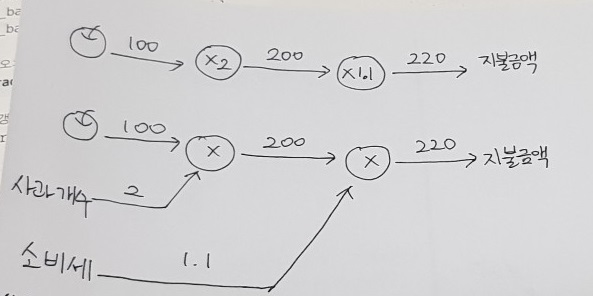 100 ×2 200 ×1.1 220 지불금액
100 × 200 × 220 지불금액
사과개수 2
소비세 1.1